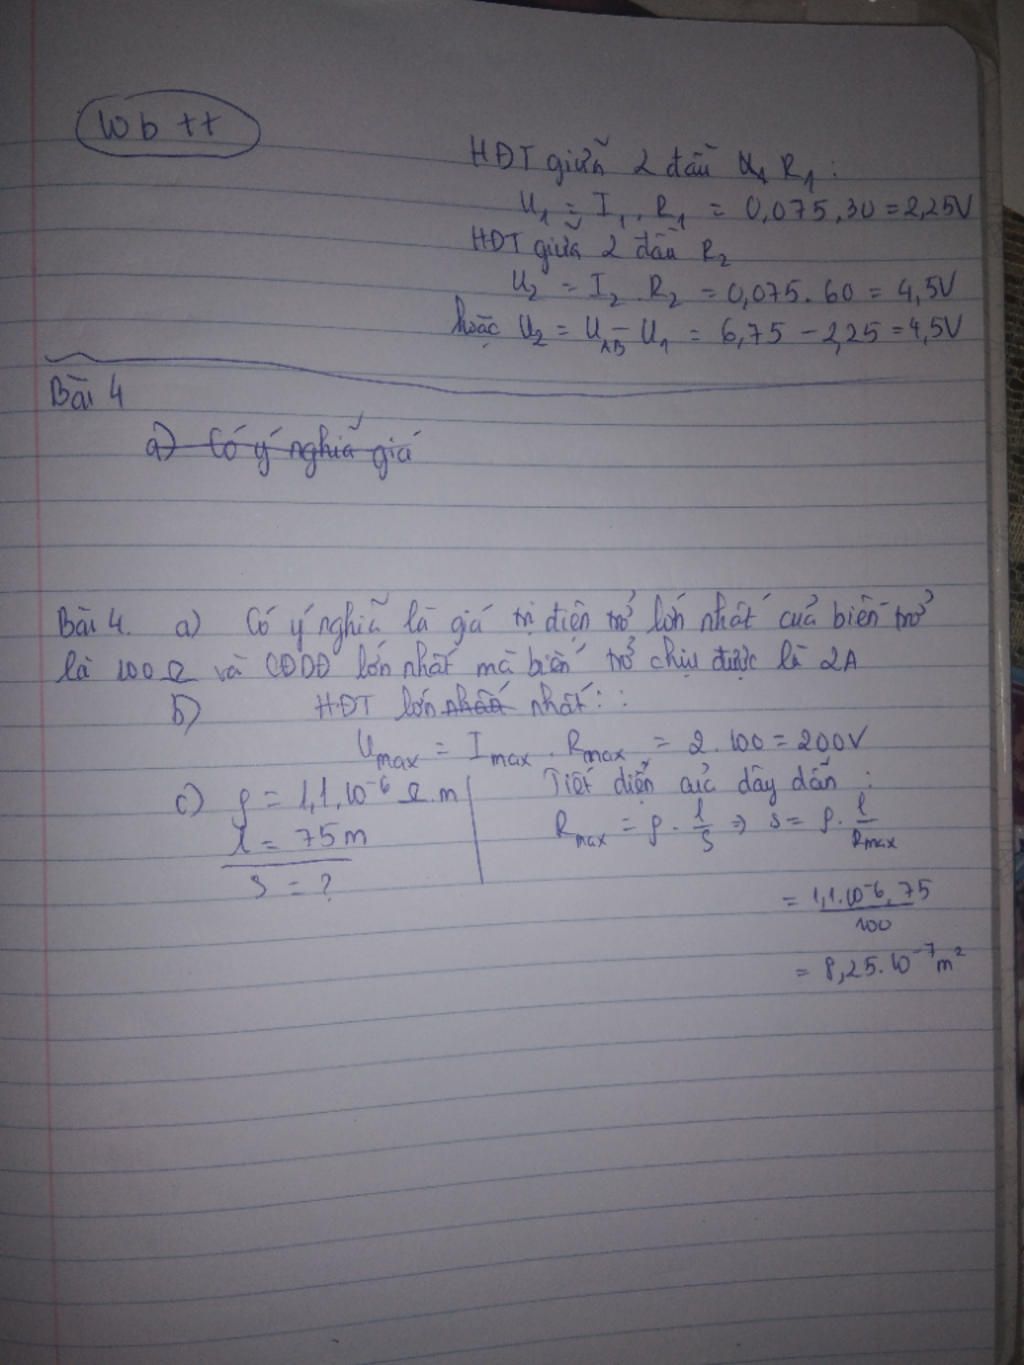 Wb tt
HĐT giữa 2 đầu R₁ :
U₁ = I₁ . R₁ = 0,075 . 30 = 2,25V
HĐT giữa 2 đầu R₂
U₂ = I₂ . R₂ = 0,075 . 60 = 4,5V
hoặc U₂ = U_AB - U₁ = 6,75 - 2,25 = 4,5V
Bài 4
a) Có ý nghĩa giá
Bài 4. a) Có ý nghĩa là giá trị điện trở lớn nhất của biến trở
là 100 Ω và CĐDĐ lớn nhất mà biến trở chịu được là 2A
b) HĐT lớn nhất :
U_max = I_max . R_max = 2 . 100 = 200V
c) ρ = 1,1.10⁻⁶ Ω.m
l = 75m
S = ?
Tiết diện của dây dẫn :
R_max = ρ . l/S => S = ρ . l/R_max
= 1,1.10⁻⁶.75/100
= 8,25.10⁻⁷ m²